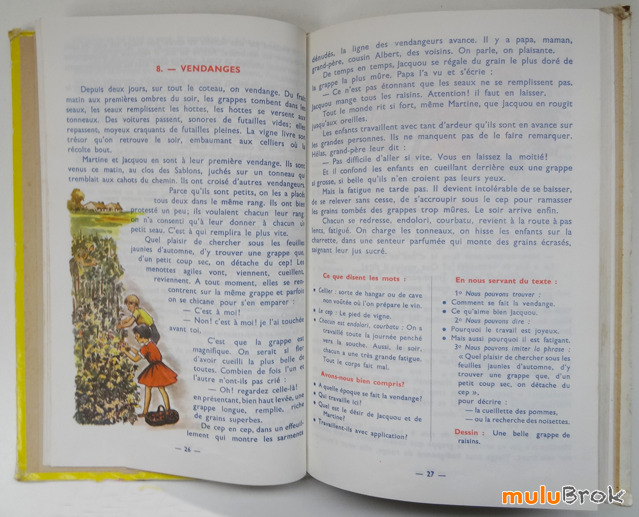 8. — VENDANGES
Depuis deux jours, sur tout le coteau, on vendange. Du frais
matin aux premières ombres du soir, les grappes tombent dans les
seaux, les seaux remplissent les hottes, les hottes se versent aux
tonneaux. Des voitures passent, sonores de futailles vides; elles
repassent, moyeux craquants de futailles pleines. La vigne livre son
trésor qu'on retrouve le soir, embaumant aux celliers où la
récolte bout.
Martine et Jacquou en sont à leur première vendange. Ils sont
venus ce matin, au clos des Sablons, juchés sur un tonneau qui
tremblait aux cahots du chemin. Ils ont croisé d'autres vendangeurs.
Parce qu'ils sont petits, on les a placés
tous deux dans le même rang. Ils ont bien
protesté un peu; ils voulaient chacun leur rang,
on n'a consenti qu'à leur donner à chacun un
petit seau. C'est à qui remplira le plus vite.
Quel plaisir de chercher sous les feuilles
jaunies d'automne, d'y trouver une grappe que,
d'un petit coup sec, on détache du cep! Les
menottes agiles vont, viennent, cueillent,
reviennent. A tout moment, elles se ren-
contrent sur la même grappe et parfois
on se chicane pour s'en emparer :
— C'est à moi!
— Non! c'est à moi! je l'ai touchée
avant toi.
C'est que la grappe est
magnifique. On serait si fier
d'avoir cueilli la plus belle de
toutes. Combien de fois l'un et
l'autre n'ont-ils pas crié :
— Oh! regardez celle-là!
en présentant, bien haut levée, une
grappe longue, remplie, riche
de grains superbes.
De cep en cep, dans un effeuil-
lement qui montre les sarments
— 26 —
dénudés, la ligne des vendangeurs avance. Il y a papa, maman,
grand-père, cousin Albert, des voisins. On parle, on plaisante.
De temps en temps, Jacquou se régale du grain le plus doré de
la grappe la plus mûre. Papa l'a vu et s'écrie :
— Ce n'est pas étonnant que les seaux ne se remplissent pas.
Jacquou mange tous les raisins. Attention! il faut en laisser.
Tout le monde rit si fort, même Martine, que Jacquou en rougit
jusqu'aux oreilles.
Les enfants travaillent avec tant d'ardeur qu'ils sont en avance sur
les grandes personnes. Ils ne manquent pas de le faire remarquer.
Hélas, grand-père leur dit :
— Pas difficile d'aller si vite. Vous en laissez la moitié!
Et il confond les enfants en cueillant derrière eux une grappe
si grosse, si belle qu'ils n'en croient pas leurs yeux.
Mais la fatigue ne tarde pas. Il devient intolérable de se baisser,
de se relever sans cesse, de s'accroupir sous le cep pour ramasser
les grains tombés des grappes trop mûres. Le soir arrive enfin.
Chacun se redresse, endolori, courbatu, et revient à la route à pas
lents, fatigué. On charge les tonneaux, on hisse les enfants sur la
charrette, dans une senteur parfumée qui monte des grains écrasés,
saignant leur jus sucré.
Ce que disent les mots :
• Cellier : sorte de hangar ou de cave
non voûtée où l'on prépare le vin.
• Le cep : Le pied de vigne.
• Chacun est endolori, courbatu : On a
travaillé toute la journée penché
vers la souche. Aussi, le soir,
chacun a une très grande fatigue.
Tout le corps fait mal.
Avons-nous bien compris?
• A quelle époque se fait la vendange?
• Qui travaille ici?
• Quel est le désir de Jacquou et de
Martine?
• Travaillent-ils avec application?
En nous servant du texte :
1º Nous pouvons trouver :
• Comment se fait la vendange.
• Ce qu'aime bien Jacquou.
2º Nous pouvons dire :
• Pourquoi le travail est joyeux.
• Mais aussi pourquoi il est fatigant.
3º Nous pouvons imiter la phrase :
« Quel plaisir de chercher sous les
feuilles jaunies d'automne, d'y
trouver une grappe que, d'un
petit coup sec, on détache du
cep »,
pour décrire :
— la cueillette des pommes.
— ou la recherche des noisettes.
Dessin : Une belle grappe de
raisins.
— 27 —
muluBrok